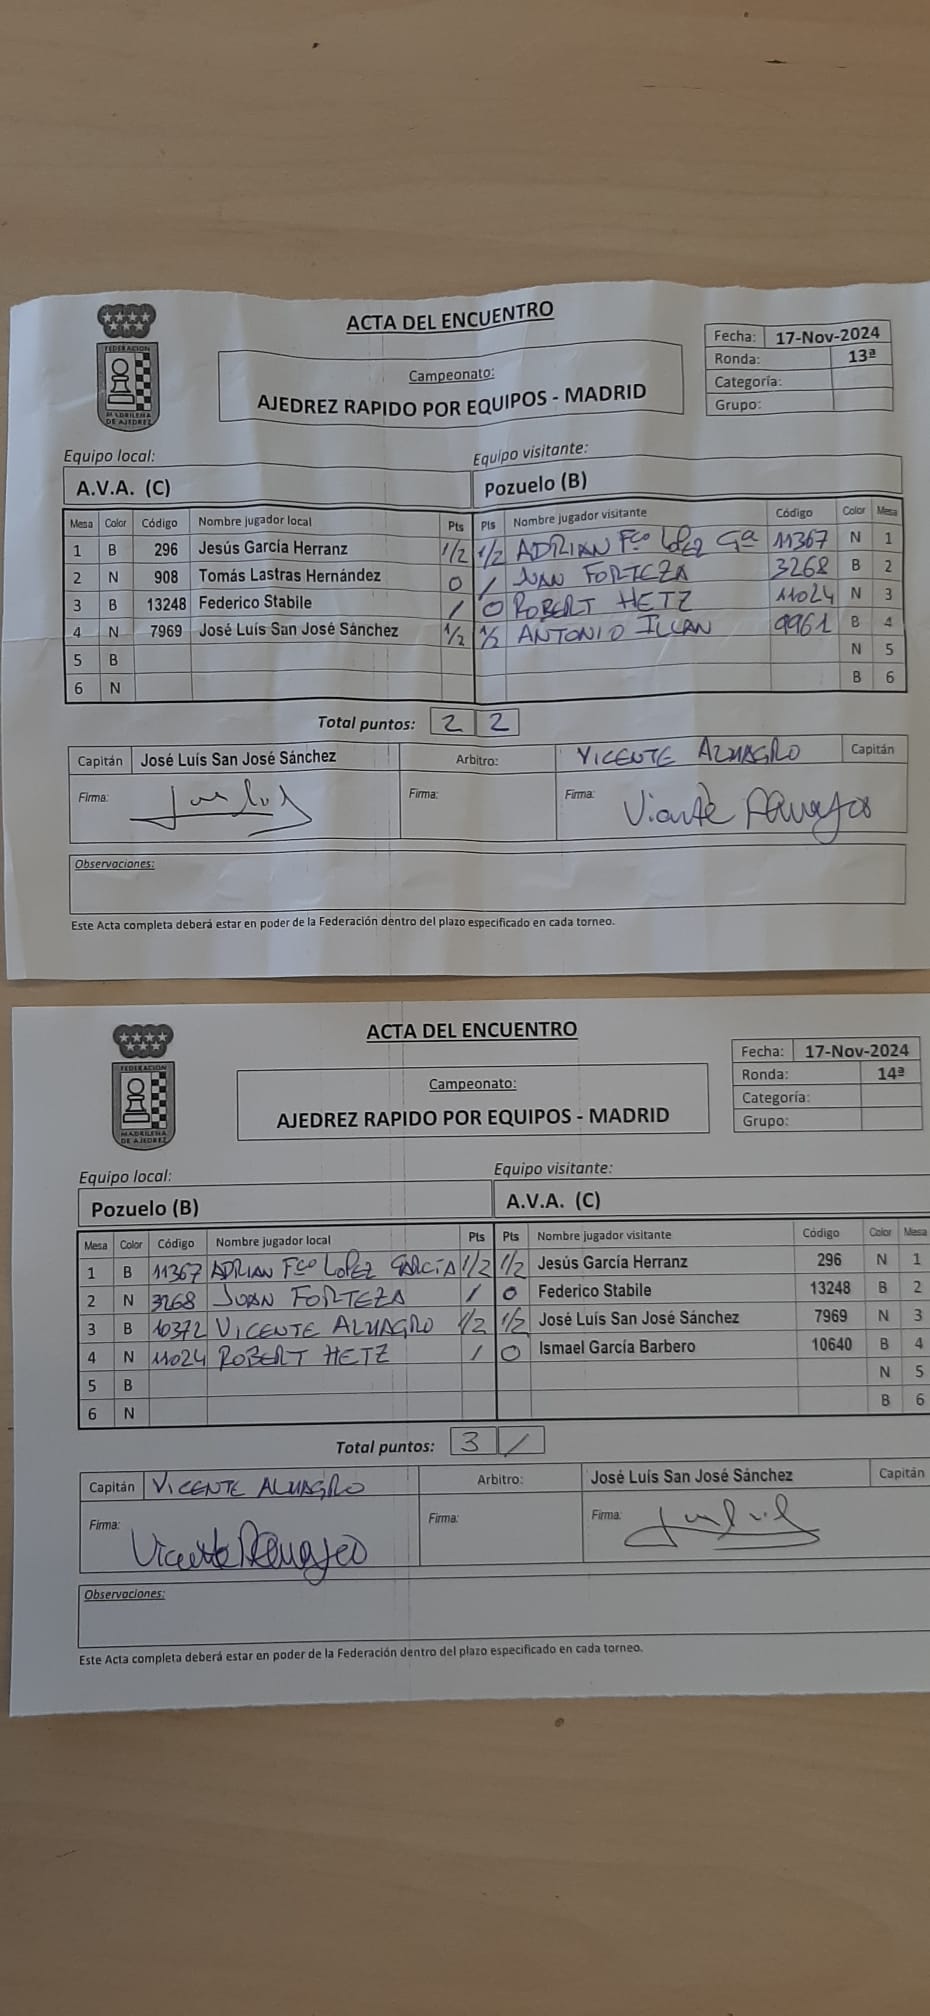 FEDERACION
MADRILEÑA
DE AJEDREZ
ACTA DEL ENCUENTRO
Campeonato:
AJEDREZ RAPIDO POR EQUIPOS - MADRID
Fecha: 17-Nov-2024
Ronda: 13ª
Categoría:
Grupo:
Equipo local: Equipo visitante:
A.V.A. (C) Pozuelo (B)
Mesa Color Código Nombre jugador local Pts Pts Nombre jugador visitante Código Color Mesa
1 B 296 Jesús García Herranz 1/2 1/2 ADRIAN Fco LOPEZ Gª 11367 N 1
2 N 908 Tomás Lastras Hernández 0 1 JUAN FORTEZA 3268 B 2
3 B 13248 Federico Stabile 1 0 ROBERT HETZ 11024 N 3
4 N 7969 José Luís San José Sánchez 1/2 1/2 ANTONIO ILLAN 9961 B 4
5 B N 5
6 N B 6
Total puntos: 2 2
Capitán José Luís San José Sánchez Arbitro: VICENTE ALMAGRO Capitán
Firma: Firma: Firma: Vicente Almagro
Observaciones:
Este Acta completa deberá estar en poder de la Federación dentro del plazo especificado en cada torneo.
FEDERACION
MADRILEÑA
DE AJEDREZ
ACTA DEL ENCUENTRO
Campeonato:
AJEDREZ RAPIDO POR EQUIPOS - MADRID
Fecha: 17-Nov-2024
Ronda: 14ª
Categoría:
Grupo:
Equipo local: Equipo visitante:
Pozuelo (B) A.V.A. (C)
Mesa Color Código Nombre jugador local Pts Pts Nombre jugador visitante Código Color Mesa
1 B 11367 ADRIAN Fco LOPEZ GARCIA 1/2 1/2 Jesús García Herranz 296 N 1
2 N 3268 JUAN FORTEZA 1 0 Federico Stabile 13248 B 2
3 B 10372 VICENTE ALMAGRO 1/2 1/2 José Luís San José Sánchez 7969 N 3
4 N 11024 ROBERT HETZ 1 0 Ismael García Barbero 10640 B 4
5 B N 5
6 N B 6
Total puntos: 3 1
Capitán VICENTE ALMAGRO Arbitro: José Luís San José Sánchez Capitán
Firma: Vicente Almagro Firma: Firma:
Observaciones:
Este Acta completa deberá estar en poder de la Federación dentro del plazo especificado en cada torneo.